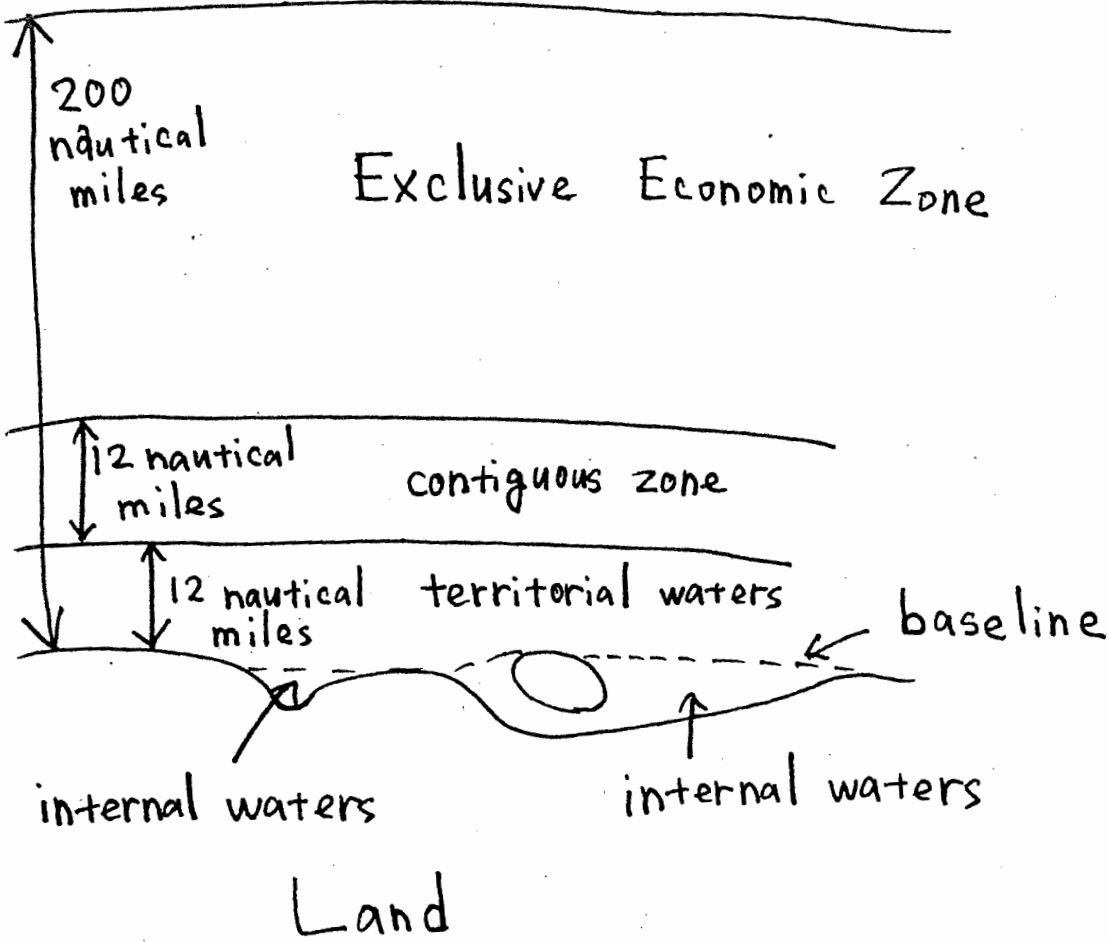 200
nautical
miles
Exclusive Economic Zone
12 nautical
miles
contiguous zone
12 nautical
miles
territorial waters
baseline
internal waters
internal waters
Land